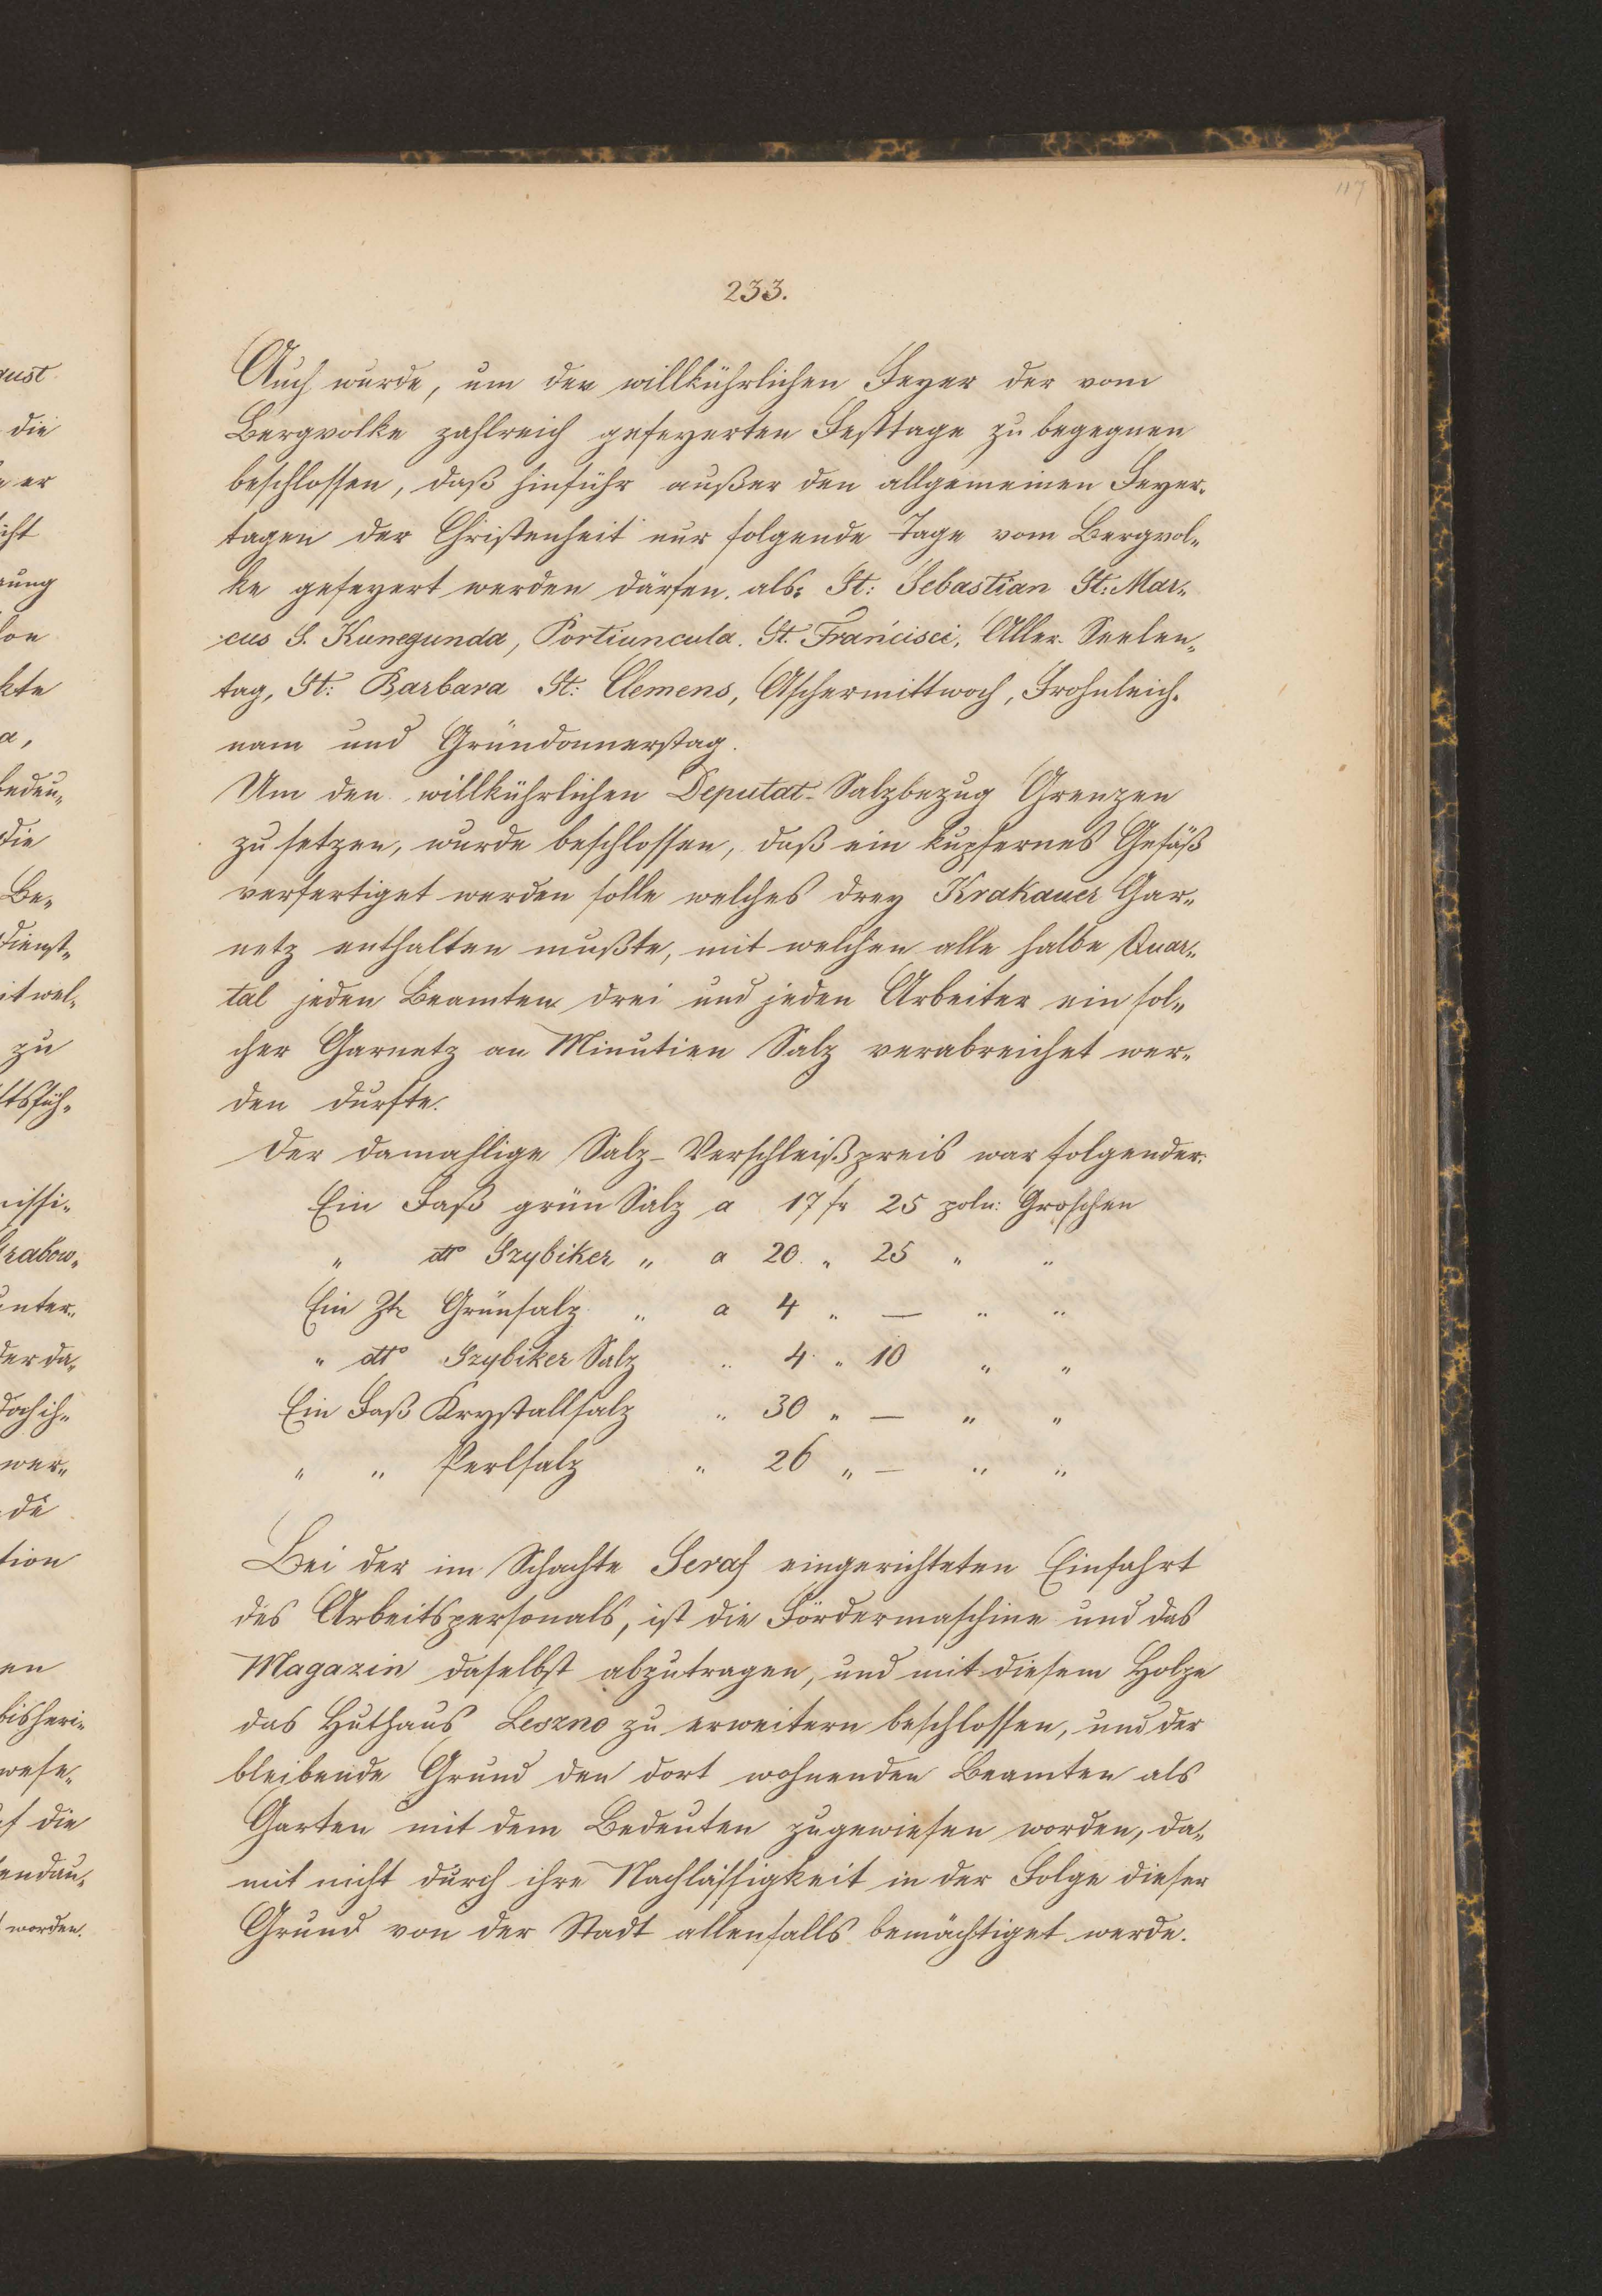 117
233.
Auch wurde, um der willkührlichen Feyer der vom
Bergvolke zahlreich gefeyerten Festtage zu begegnen
beschlossen, daß hinführ außer den allgemeinen Feyer-
tagen der Christenheit nur folgende Tage vom Bergvol-
ke gefeyert werden därfen. als: St: Sebastian St: Mar-
cus S. Kunegunda, Portiuncula. St. Francisci, Aller Seelen-
tag, St: Barbara St: Clemens, Aschermittwoch, Frohnleich-
nam und Gründonnerstag.
Um den willkührlichen Deputat-Salzbezug Grenzen
zu setzen, wurde beschlossen, daß ein kupfernes Gefäß
verfertiget werden solle welches drey Krakauer Gar-
netz enthalten mußte, mit welchen alle halbe Quar-
tal jeden Beamten drei und jeden Arbeiter ein sol-
cher Garnetz an Minutien Salz verabreichet wer-
den durfte.
Der damahlige Salz-Verschleißpreis war folgender:
Ein Faß grün Salz a 17 fr 25 poln: Groschen
" dto Szybiker " a 20 " 25 " "
Ein Ztr Grünsalz " a 4 " — " "
" dto Szybiker Salz " 4 " 10 " "
Ein Faß Krystallsalz " 30 " — " "
" " Perlsalz " 26 " — " "
Bei der im Schachte Seraf eingerichteten Einfahrt
des Arbeitspersonals, ist die Fördermaschine und das
Magazin daselbst abzutragen, und mit diesem Holze
das Huthaus Leszno zu erweitern beschlossen, und der
bleibende Grund den dort wohnenden Beamten als
Garten mit dem Bedeuten zugewiesen worden, da-
mit nicht durch ihre Nachlässigkeit in der Folge dieser
Grund von der Stadt allenfalls bemächtiget werde.